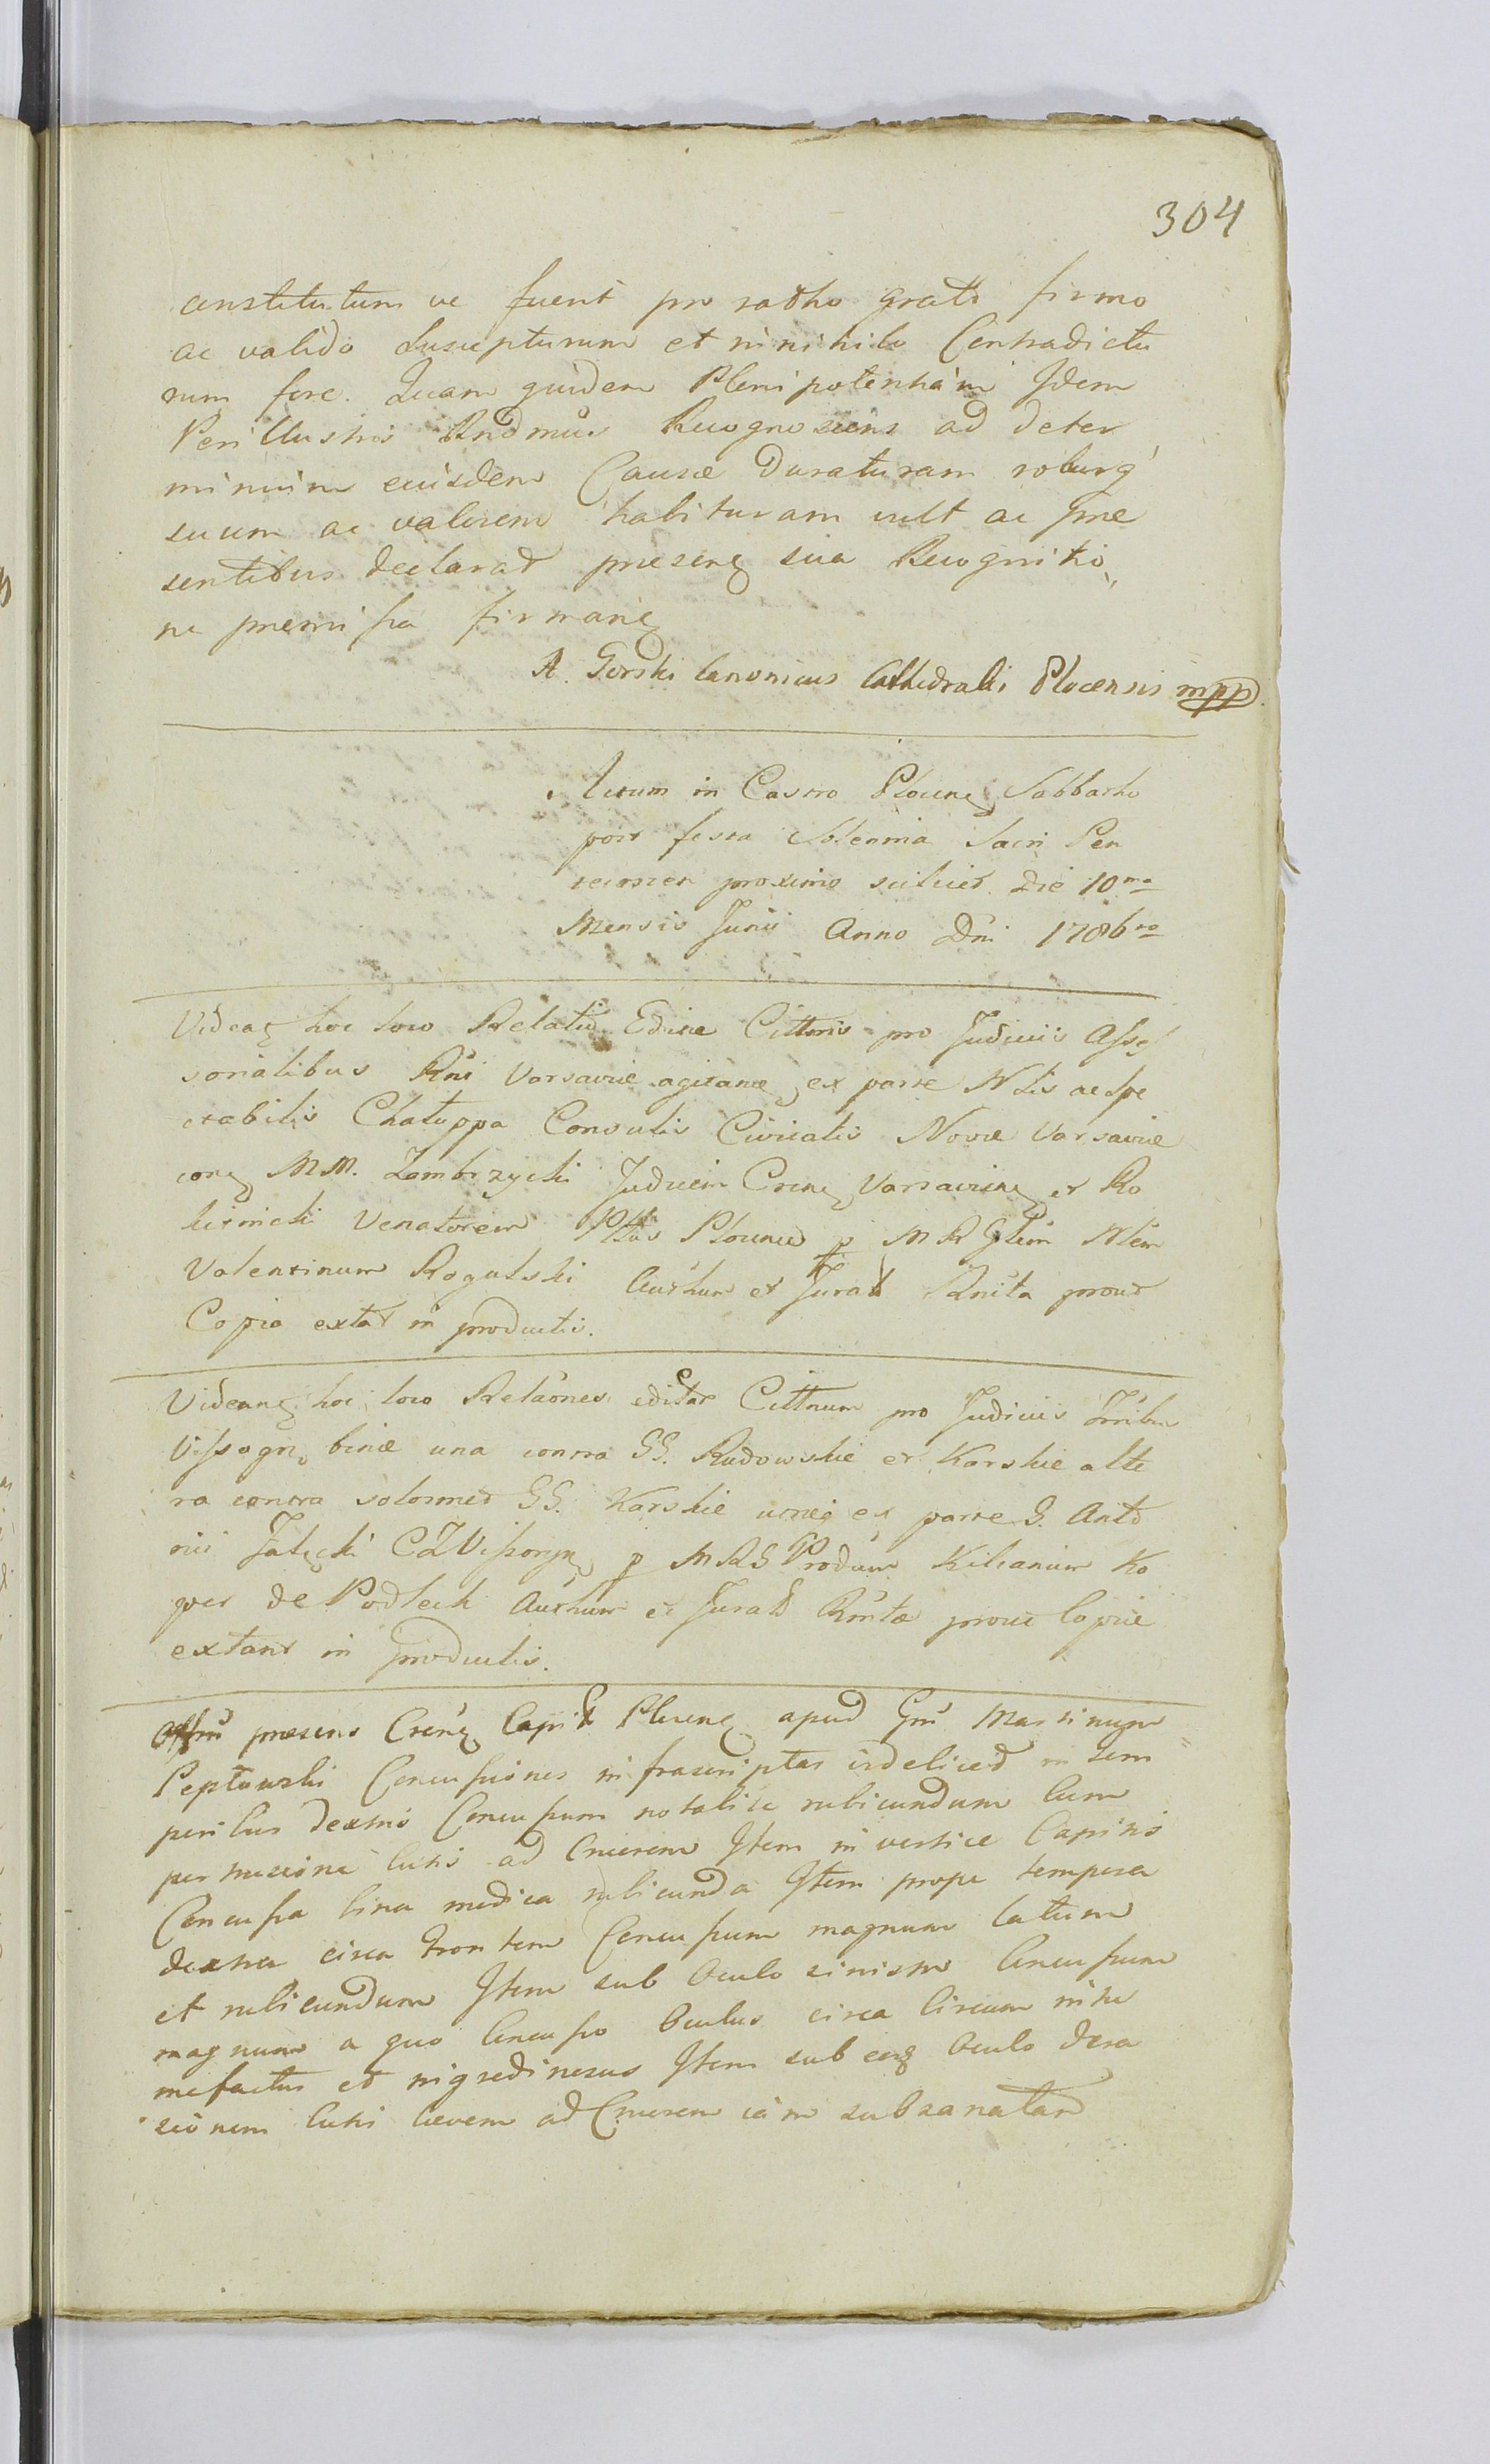 304
constitutum ve fuerit pro ratho grato firmo
ac valido Suscepturum et in nihilo Contradictu
rum fore. Quam quidem Plenipotentiam Idem
Perillustris Rndmus Recognoscens ad deter
minium eiusdem Causæ Duraturam roburq
suum ac valorem habituram vult ac præ
sentibus declarat præsenq sua Recognitio
ne præmissa firmanq
A. Gorski Canonicus Cathedralis Plocensis mpp.
Actum in Castro Plocenq Sabbatho
post festa Solennia Sacri Pen
tecostes proximo scilicet Die 10ma
Mensis Junii Anno Dni 1786to
Videaq hoc loco Relatio Editæ Cittonis pro Judiciis Asse
sorialibus Rni Varsaviæ agitanæ ex parte Nlis ac Spe
ctabilis Chatuppa Consulis Civitatis Novæ Varsaviæ
conq MM. Zembrzycki Judicem Crenq Varsavienq et Ro
ścimicki Venatorem Pttus Plocens p MRGlem Nlem
Valentinum Rogulski Authum et Jurat Rnita prout
Copia extat in productis.
Videanq hoc loco Relaones editar Cittnum pro Judiciis Trribu
Vissogrq binæ una contra GG. Rudowskie et Karskie alte
ra contra solomet GG. Karskie utraq ex parte G. Anto
nii CZVissogrq p MRG Produm Kilianum Ko
per de Podlech Authum et Jurat Rnita prout Copiæ
extant in productis.
Offm præsens Crenq Capit Plocenq apud Gm Martinum
Peptowski Concussiones infrascriptas videlicet in tem
poribus dextris Concussum notabile rubicundum cum
pertusione Cutis ad Cruorem Item in vertice Capitis
Concussa bina modica rubicunda Item prope tempora
dextra circa frontem Concussum magnum latum
et rubicundum Item sub Oculo sinistro Concussum
magnum a quo Concusso Oculus circa Circum intu
mefactus et nigredinosus Item sub eoq Oculo Dera
sionem Cutis levem ad Cruorem iam subsanatam